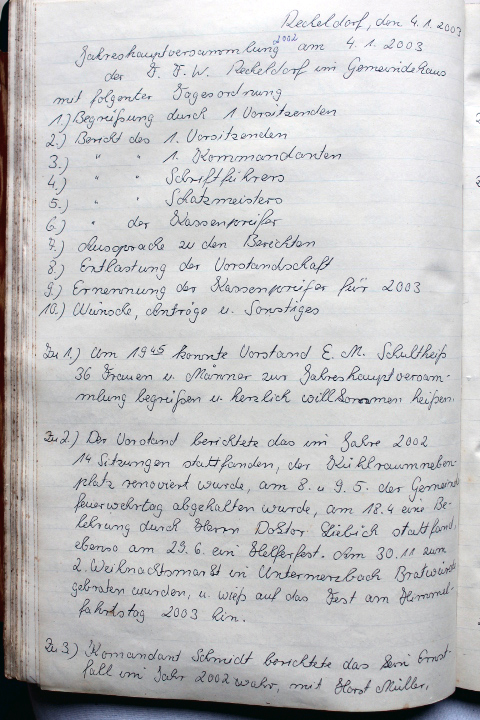 Recheldorf, den 4.1.2003
Jahreshauptversammlung 2002 am 4.1.2003
der F.F.W. Recheldorf im Gemeindehaus
mit folgenter Tagesordnung
1.) Begrüßung durch 1 Vorsitzenden
2.) Bericht des 1. Vorsitzenden
3.) " " 1. Kommandanten
4.) " " Schriftführers
5.) " " Schatzmeisters
6.) " der Kassenprüfer
7.) Aussprache zu den Berichten
8.) Entlastung der Vorstandschaft
9.) Ernennung der Kassenprüfer für 2003
10.) Wünsche, Anträge u. Sonstiges
Zu 1.) Um 19 45 konnte Vorstand E. M. Schultheiß
36 Frauen u. Männer zur Jahreshauptversam-
mlung begrüßen u. herzlich willkommen heißen.
Zu 2.) Der Vorstand berichtete das im Jahre 2002
14 Sitzungen stattfanden, der Kühlraumneben-
platz renoviert wurde, am 8. u 9.5. der Gemeinde
feuerwehrtag abgehalten wurde, am 18.4 eine Be-
lehrung durch Herrn Doktor Liebich stattfand,
ebenso am 29.6. ein Helferfest. Am 30.11 zum
2. Weihnachtsmarkt in Untermerzbach Bratwürste
gebraten wurden, u. wieß auf das Fest am Himmel-
fahrtstag 2003 hin.
Zu 3.) Komandant Schmidt berichtete das kein Ernst-
fall im Jahr 2002 wahr, mit Horst Müller,